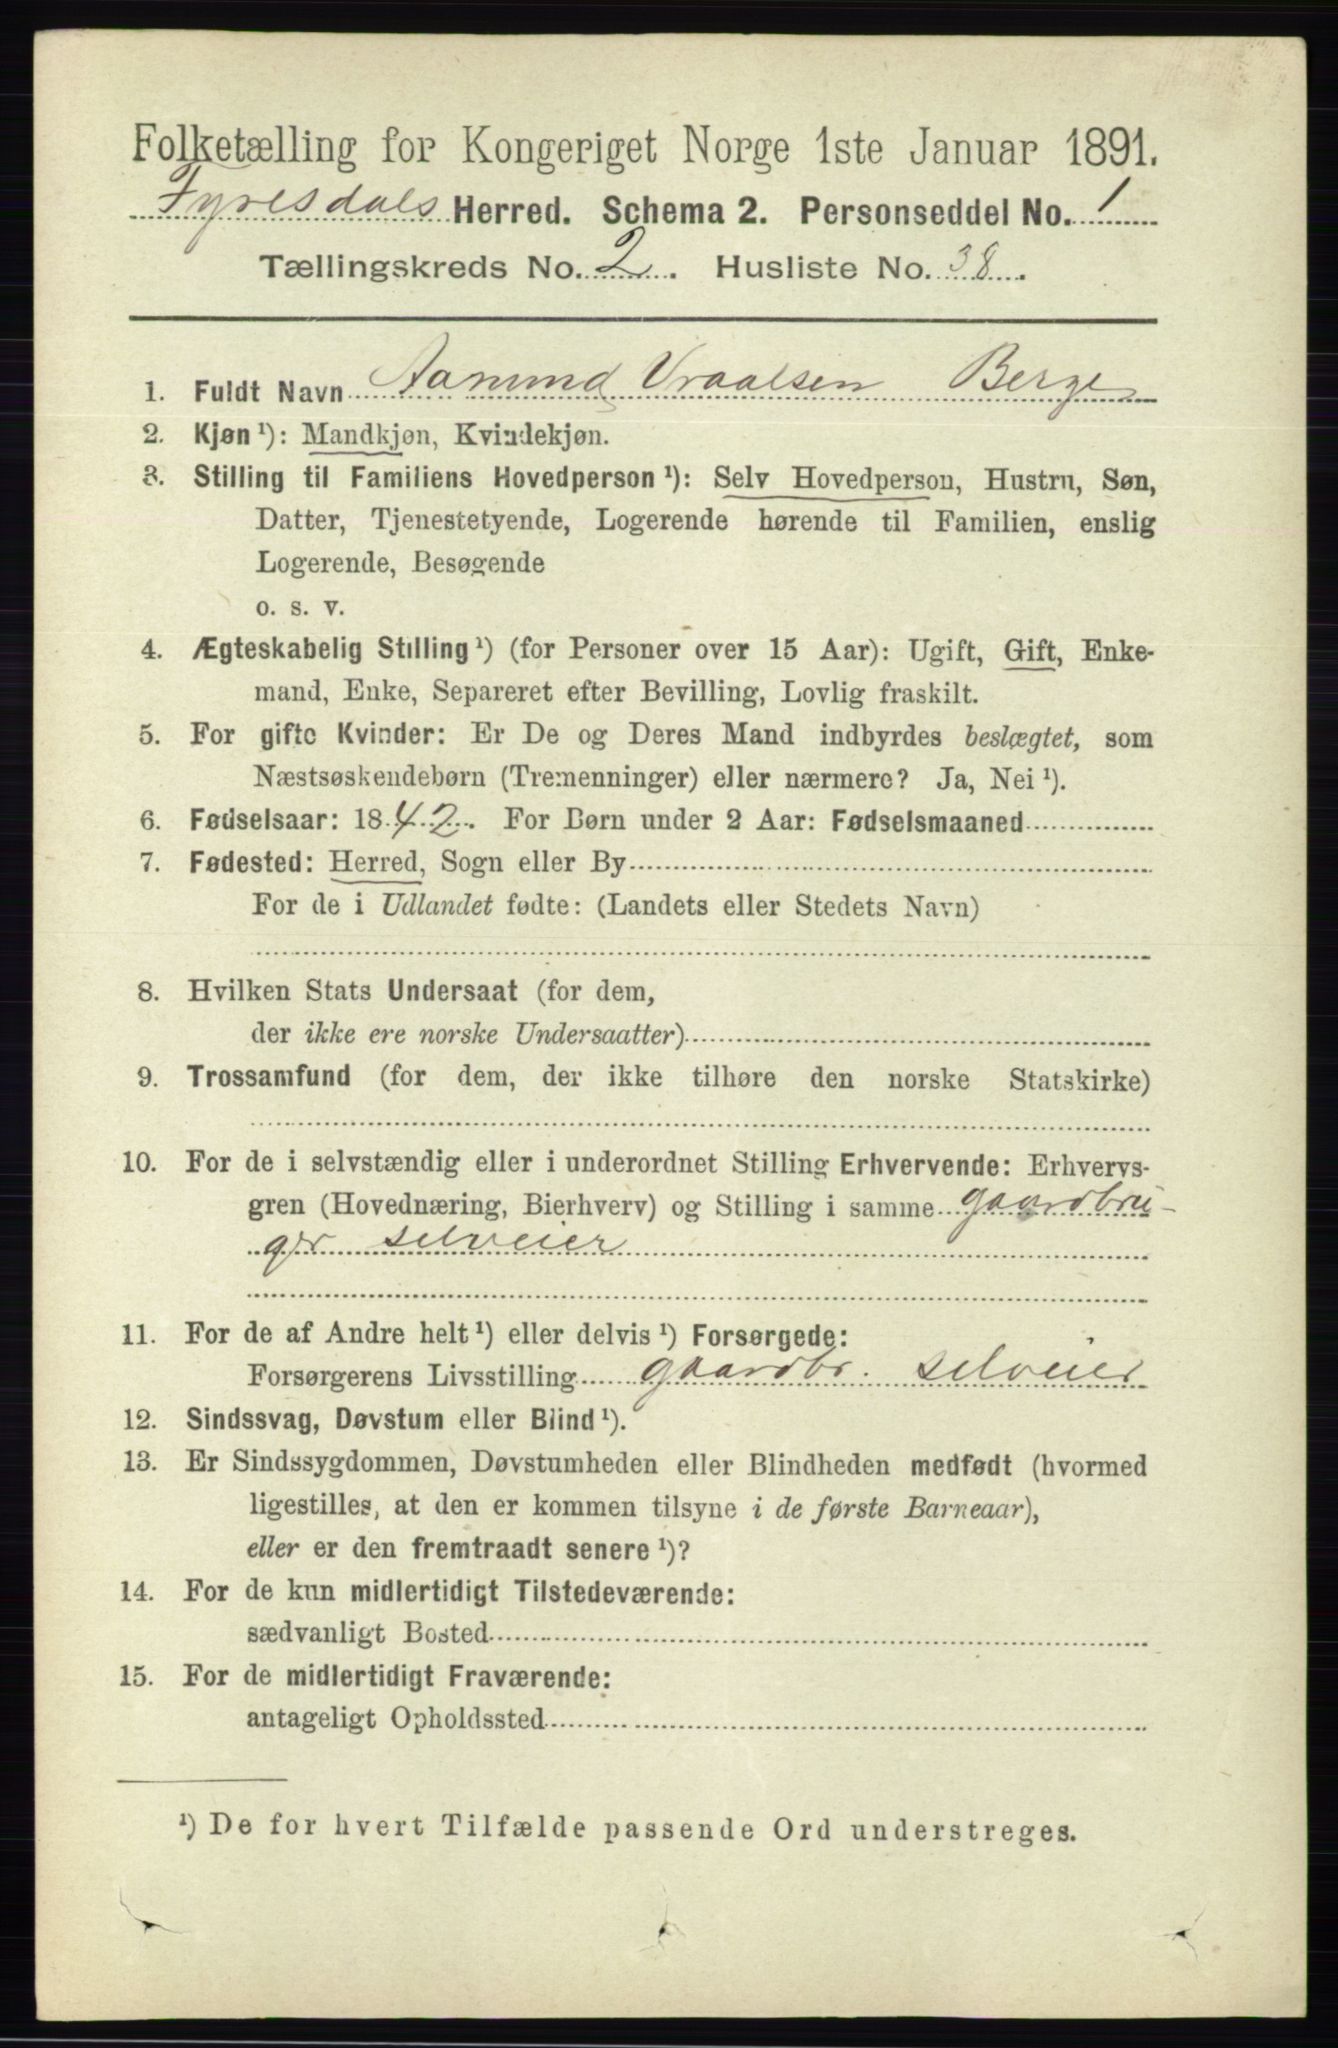 Folketælling for Kongeriget Norge 1ste Januar 1891.
Fyresdals Herred. Schema 2. Personseddel No. 1
Tællingskreds No. 2. Husliste No. 38.
1. Fuldt Navn Aamund Vraalsen Berge
2. Kjøn¹): Mandkjøn, Kvindekjøn.
3. Stilling til Familiens Hovedperson¹): Selv Hovedperson, Hustru, Søn,
Datter, Tjenestetyende, Logerende hørende til Familien, enslig
Logerende, Besøgende
o. s. v.
4. Ægteskabelig Stilling¹) (for Personer over 15 Aar): Ugift, Gift, Enke-
mand, Enke, Separeret efter Bevilling, Lovlig fraskilt.
5. For gifte Kvinder: Er De og Deres Mand indbyrdes beslægtet, som
Næstsøskendebørn (Tremenninger) eller nærmere? Ja, Nei¹).
6. Fødselsaar: 1842. For Børn under 2 Aar: Fødselsmaaned
7. Fødested: Herred, Sogn eller By
For de i Udlandet fødte: (Landets eller Stedets Navn)
8. Hvilken Stats Undersaat (for dem,
der ikke ere norske Undersaatter)
9. Trossamfund (for dem, der ikke tilhøre den norske Statskirke)
10. For de i selvstændig eller i underordnet Stilling Erhvervende: Erhvervs-
gren (Hovednæring, Bierhverv) og Stilling i samme gaardbru-
ger selveier
11. For de af Andre helt¹) eller delvis¹) Forsørgede:
Forsørgerens Livsstilling gaardbr. selveier
12. Sindssvag, Døvstum eller Blind¹).
13. Er Sindssygdommen, Døvstumheden eller Blindheden medfødt (hvormed
ligestilles, at den er kommen tilsyne i de første Barneaar),
eller er den fremtraadt senere¹)?
14. For de kun midlertidigt Tilstedeværende:
sædvanligt Bosted
15. For de midlertidigt Fraværende:
antageligt Opholdssted
¹) De for hvert Tilfælde passende Ord understreges.